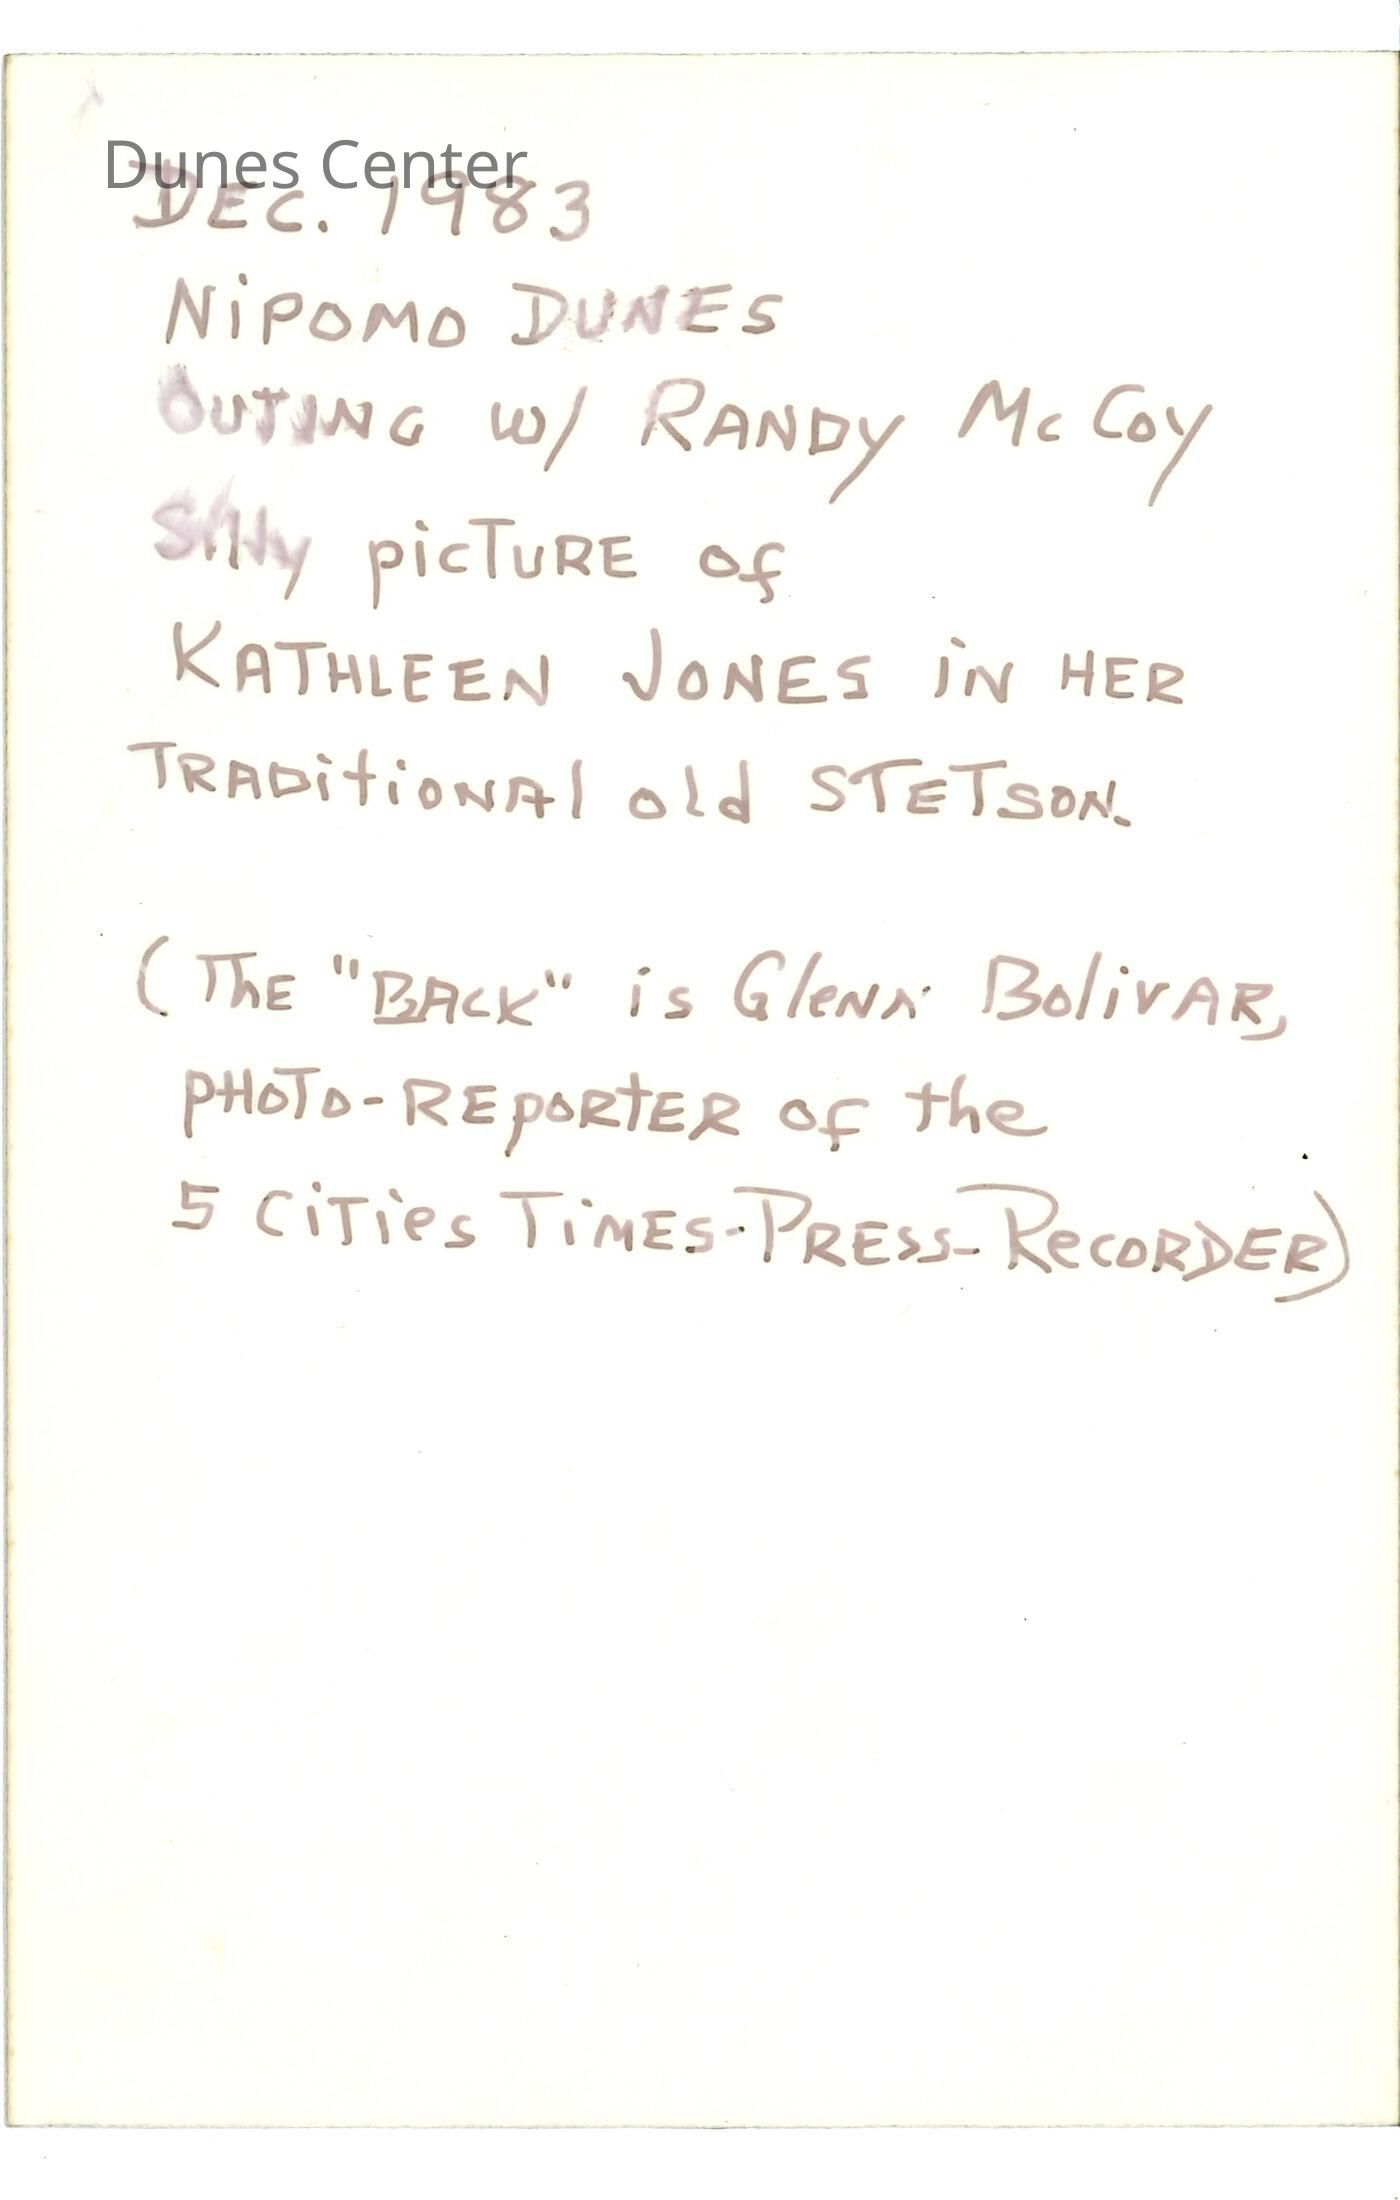 Dunes Center
DEC. 1983
NiPOMO DUNES
OUTING w/ RANDY McCoy
Silly picTURE of
KATHLEEN JONES iN HER
TRADitiONAl old STETSON.
(ThE "BACK" is GleNN BolivAR,
pHOTO-REpORtER of the
5 CiTies TiMES-PRESS-RecORDER)